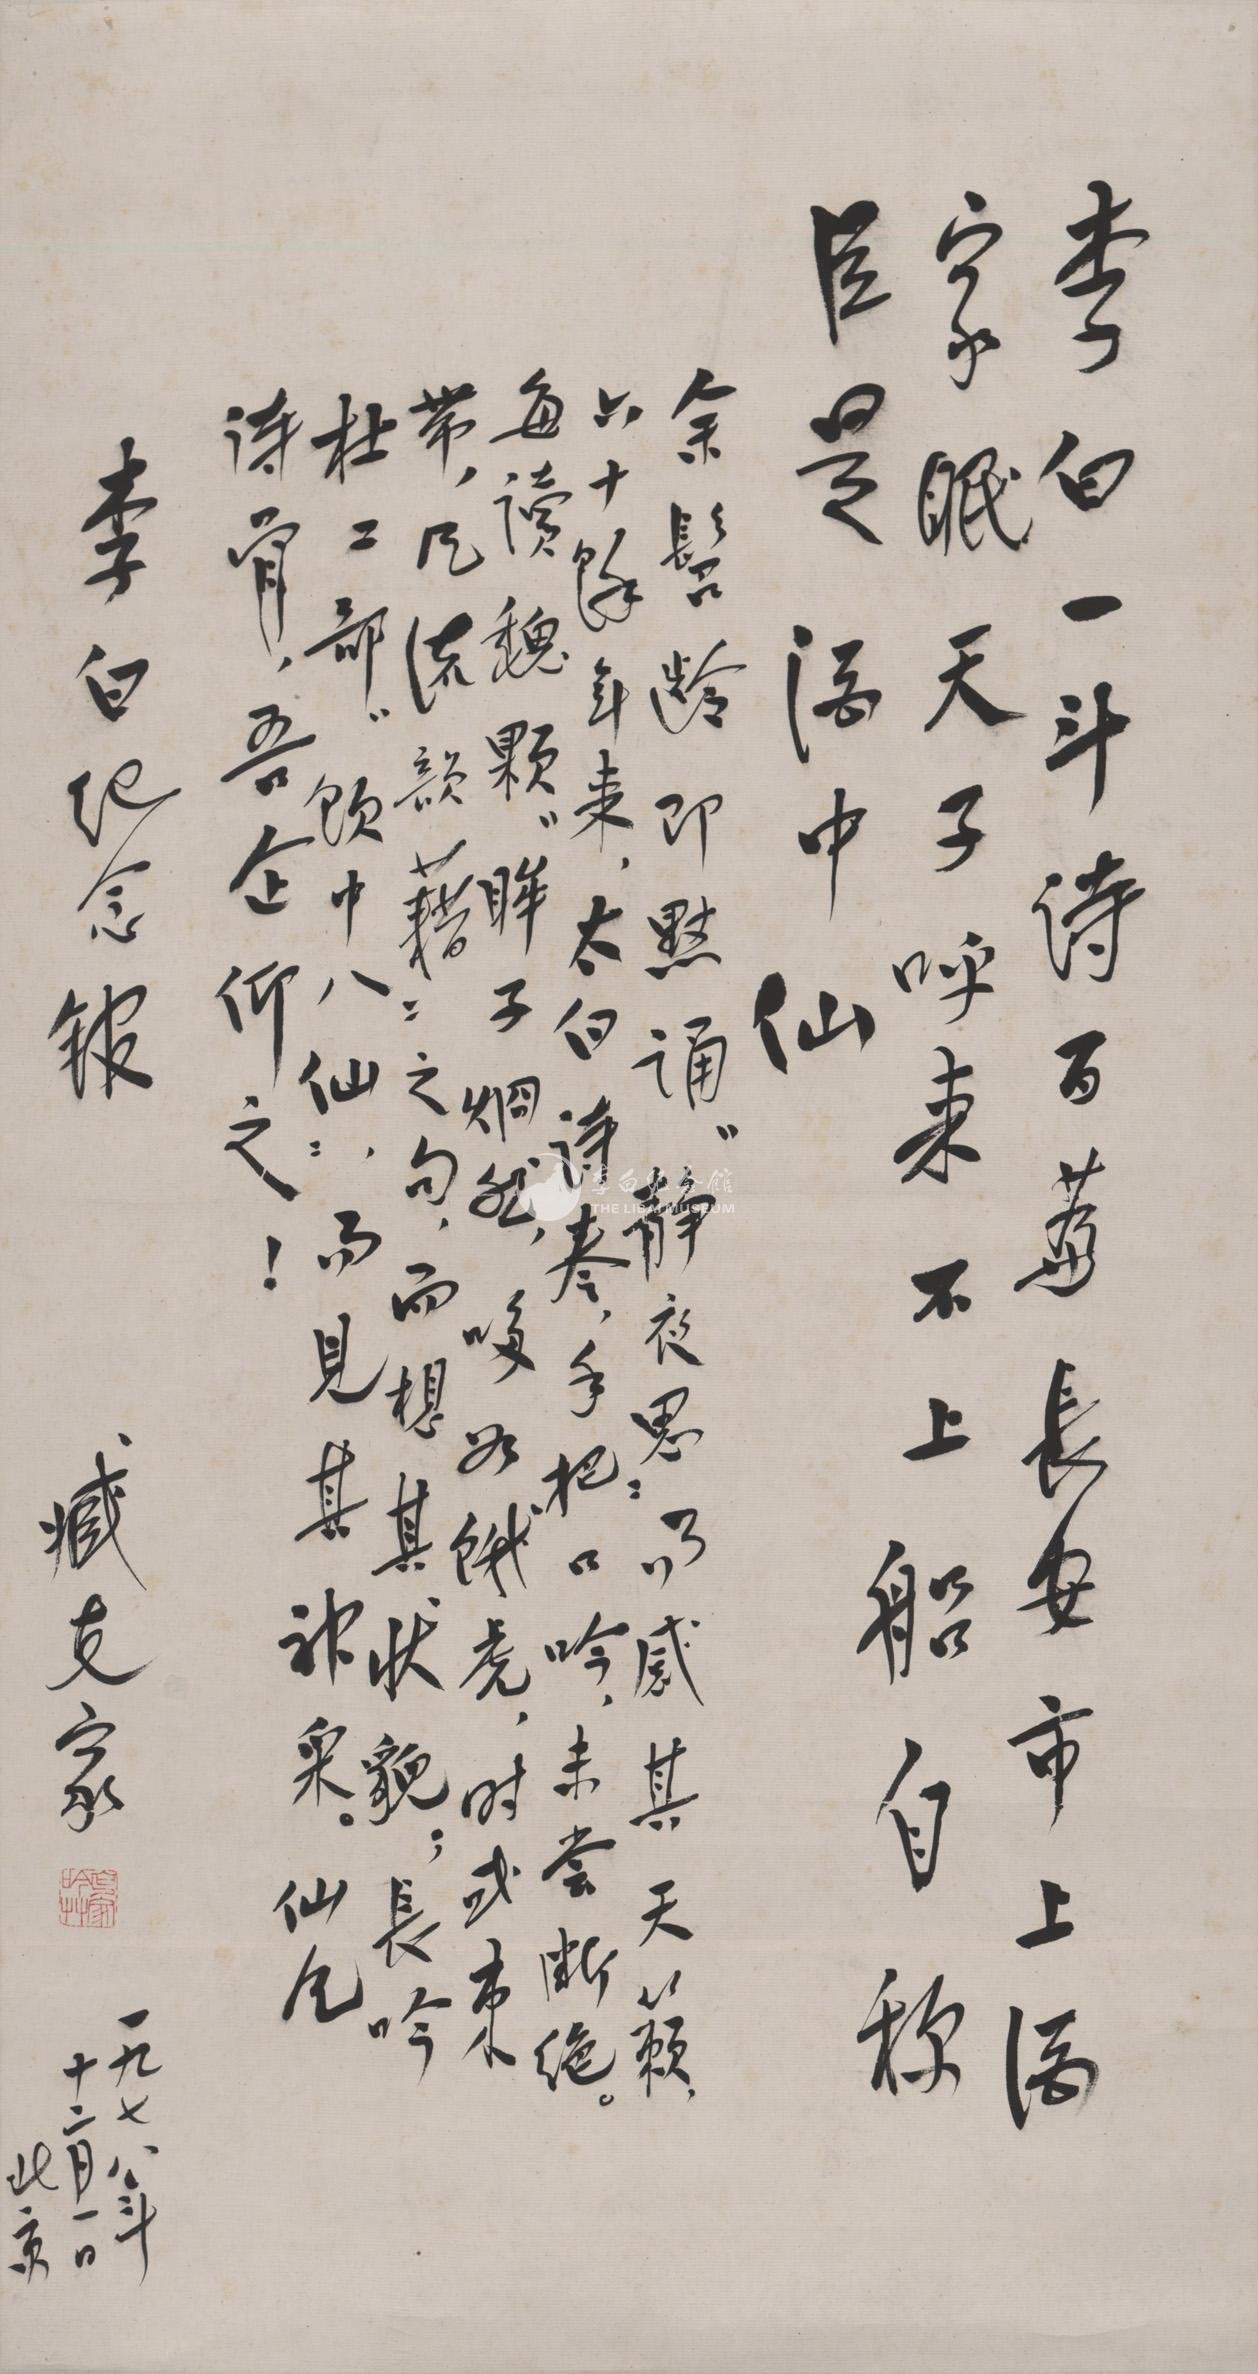 李白一斗诗百篇長安市上酒
家眠天子呼来不上船自称
臣是酒中仙
余髫龄即默誦“静夜思”,而感其天籁,
六十餘年来,太白诗卷,手把口吟,未尝断绝。
每读魏颢“眸子炯然,哆如饿虎,时或束
带,风流韻藉”之句,而想其状貌;長吟
杜工部“饮中八仙”,而見其神采。仙風
诗骨,吾企仰之!
李白纪念馆
臧克家
一九七八年
十二月一日
北京
李白纪念館
THE LIBAI MUSEUM